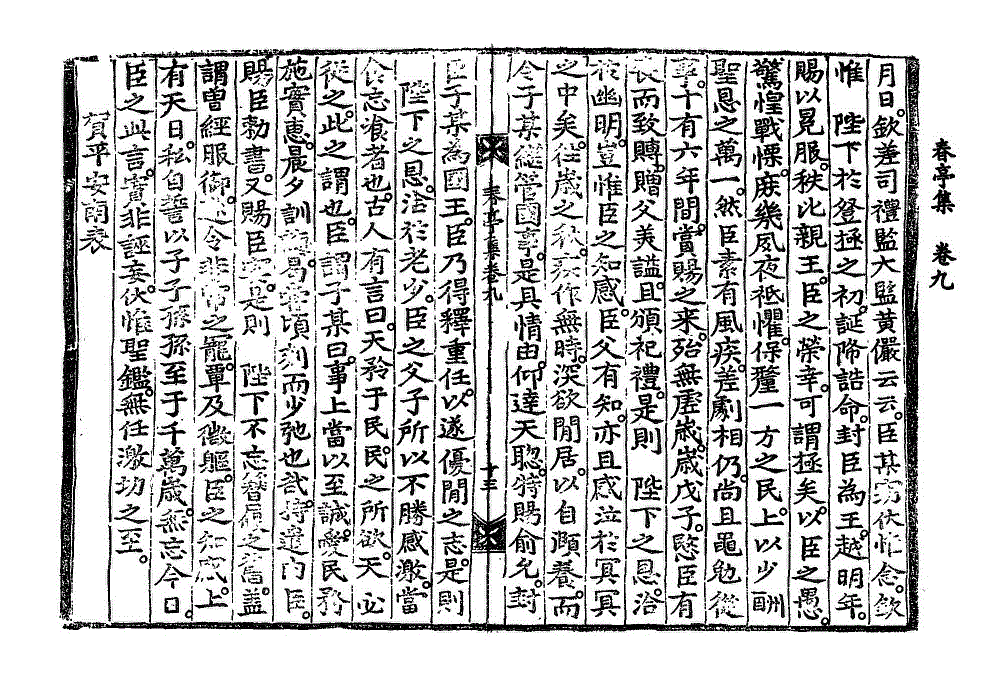 春亭集 卷九
月日。欽差司禮監大監黃儼云云。臣某竊伏惟念。欽
惟 陛下於登極之初。誕降誥命。封臣爲王。越明年。
賜以冕服。秩比親王。臣之榮幸。可謂極矣。以臣之愚。
驚惶戰慄。庶幾夙夜祗懼。保釐一方之民。上以少酬
聖恩之萬一。然臣素有風疾。差劇相仍。尚且黽勉從
事。十有六年間。賞賜之來。殆無虛歲。歲戊子。愍臣有
喪而致賻。贈父美謚。且頒祀禮。是則 陛下之恩。洽
於幽明。豈惟臣之知感。臣父有知。亦且感泣於冥冥
之中矣。往歲之秋。疾作無時。深欲閒居。以自頤養。而
令子某繼管國事。是具情由。仰達天聰。特賜俞允。封
春亭集卷九 十三
臣子某爲國王。臣乃得釋重任。以遂優閒之志。是則
陛下之恩。洽於老少。臣之父子所以不勝感激。當
食忘飡者也。古人有言曰。天矜于民。民之所欲。天必
從之。此之謂也。臣謂子某曰。事上當以至誠。愛民務
施實惠。晨夕訓 曷嘗頃刻而少弛也哉。特遣內臣。
賜臣勅書。又賜臣 是則 陛下不忘簪屨之舊。蓋
謂曾經服御。 令非常之寵。覃及微軀。臣之知感。上
有天日。私自誓以子子孫孫至于千萬歲。無忘今日。
臣之此言。實非誣妄。伏惟聖鑑。無任激切之至。
賀平安南表